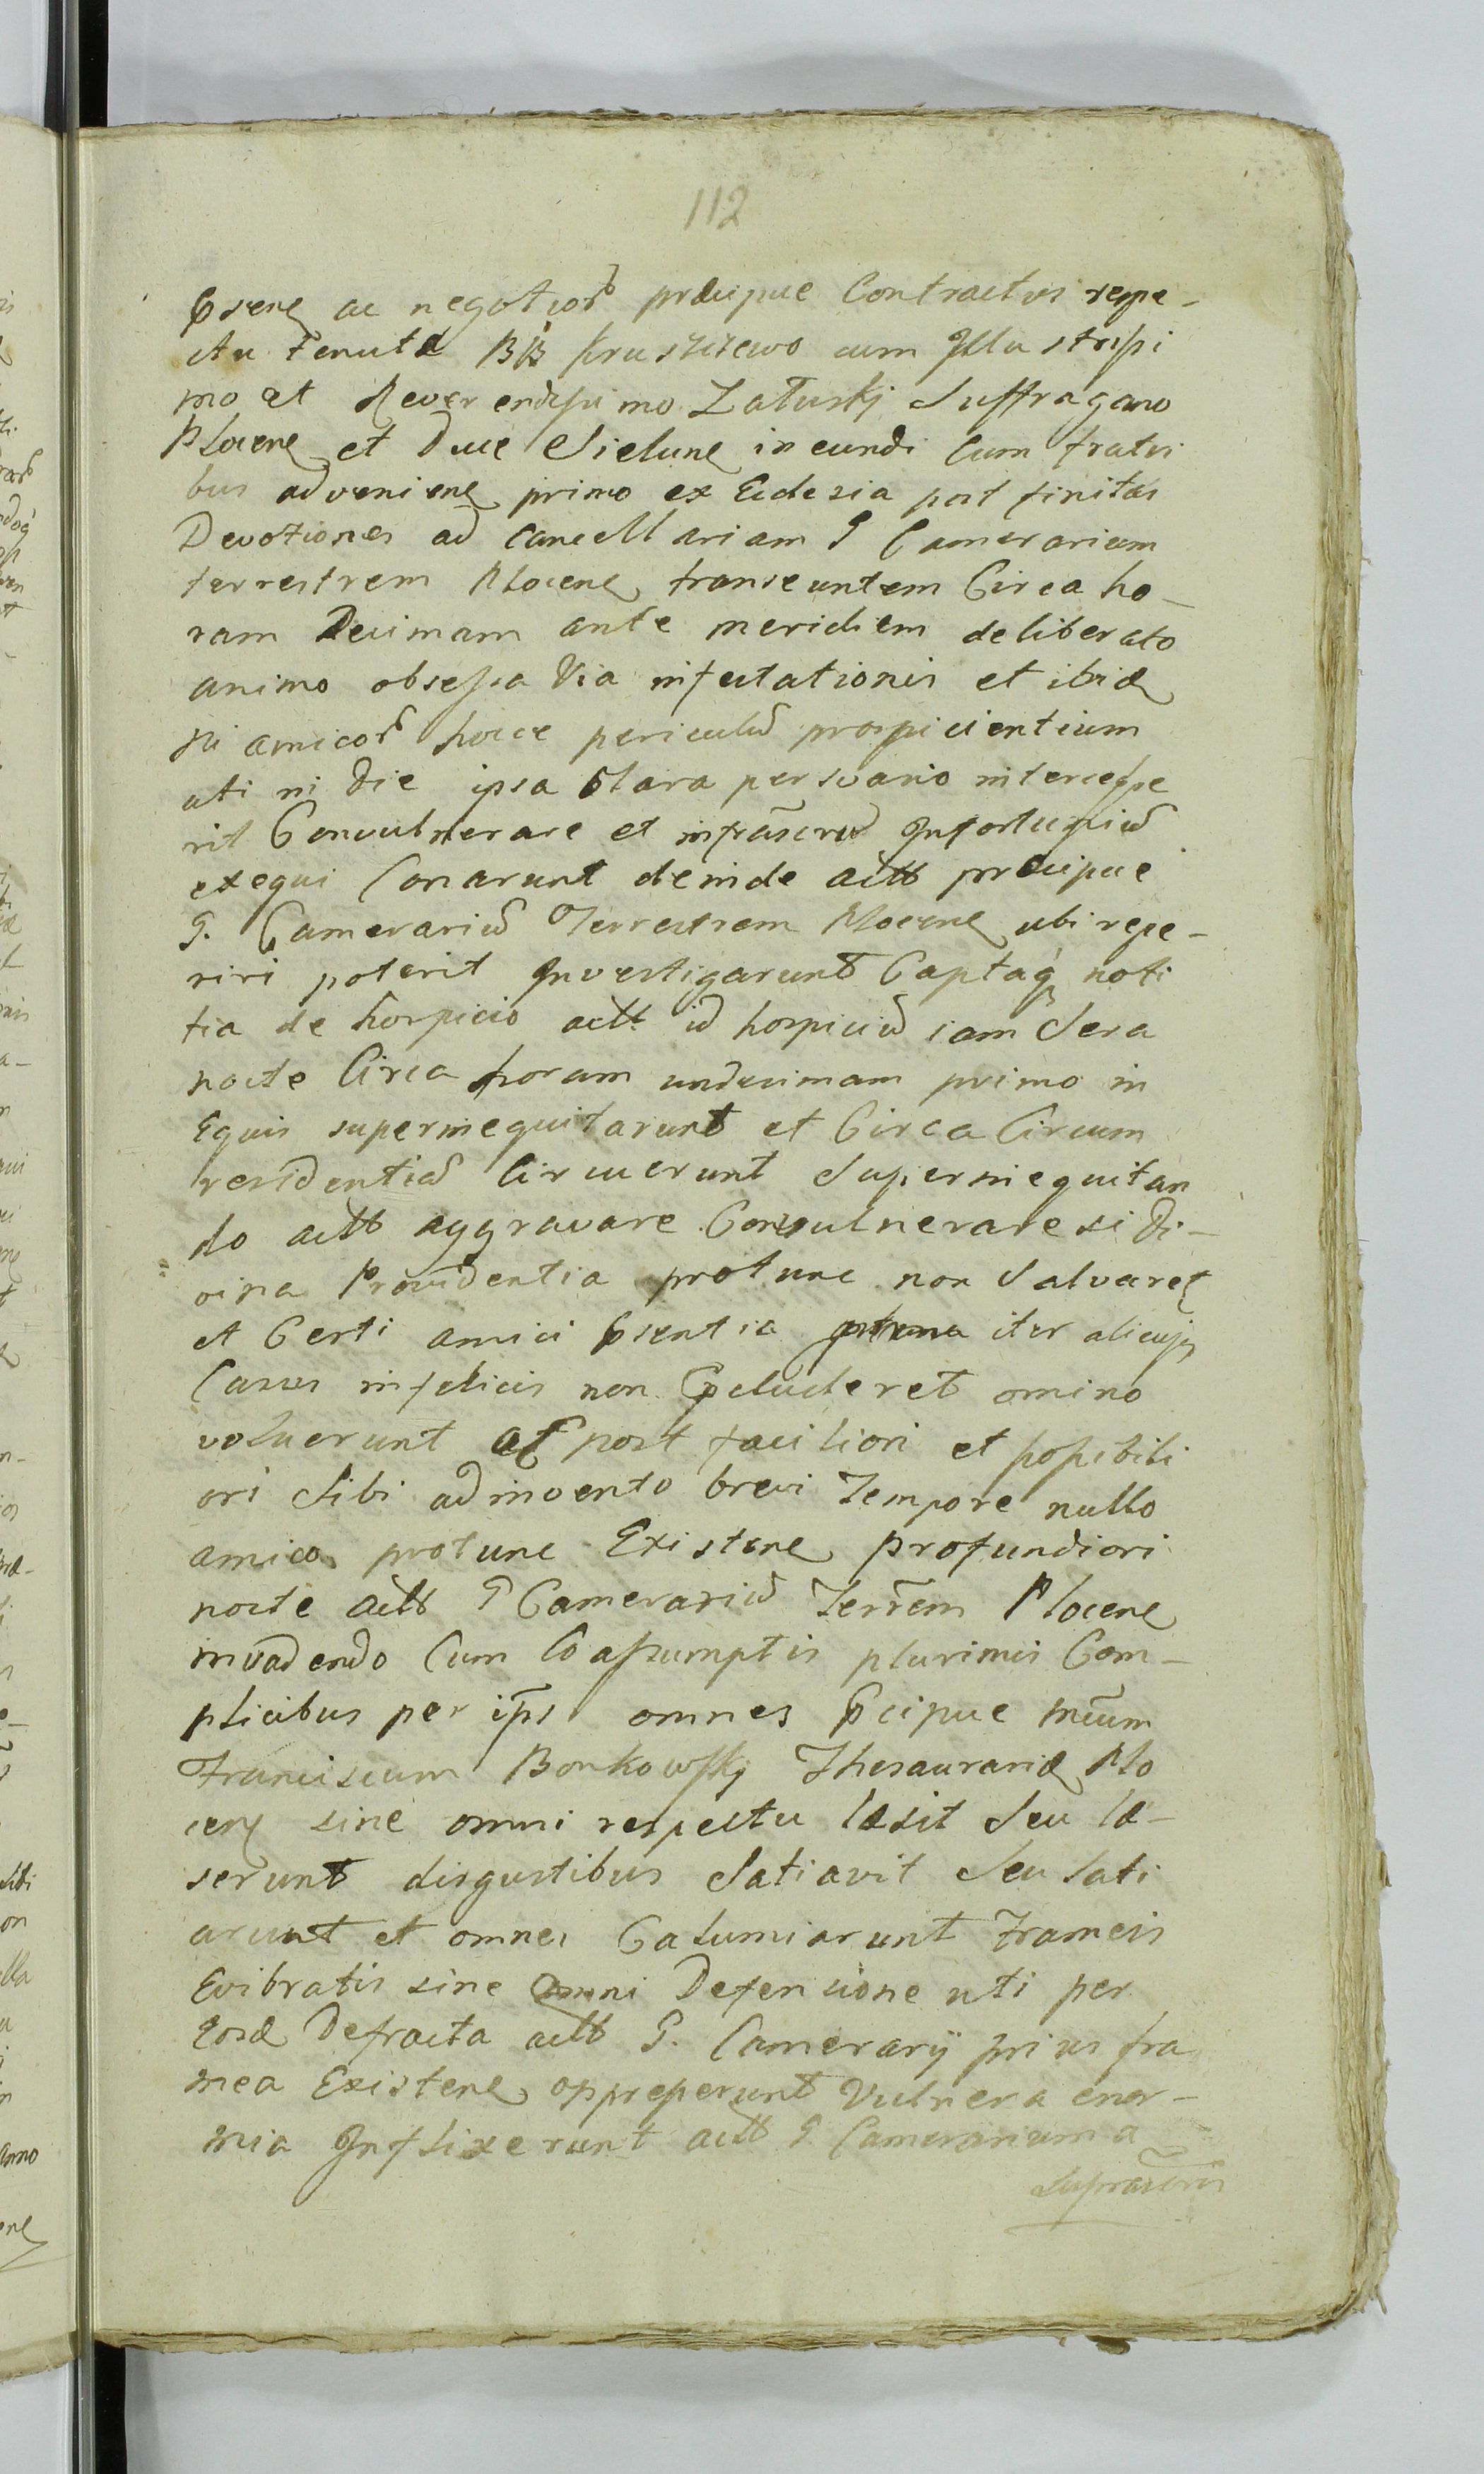 112
Psene ac negotior præcipue Contractus respe-
ctu tenutæ BB Kruszczewo cum Illustrissi
mo et Reverendissimo Załuskj Suffragano
Plocene et Duce Sielune ineundi Cum fratri
bus adveniene primo ex Ecclesia post finitas
Devotiones ad Cancellariam G Camerarium
terrestrem Plocene transeuntem Circa ho-
ram Decimam ante meridiem deliberato
animo obsessa Via infestationis et ibidē
ni amicor hocce periculū prospicientium
uti in die ipsa Clara persvasio intercesse
rit Convulnerare et infrascrū Infortuniū
exequi Conarunt deinde actt præcipue
G. Camerariū Terrestrem Plocene ubi repe-
riri poterit Investigarunt Captaq noti
tia de hospicio actt id hospiciū iam Sera
nocte Circa horam undecimam primo in
Equis superinequitarunt et Circa Circum
residentiā Circuerunt Superinequitan
do actt aggravare Convulnerare si Di-
vina Providentia protunc non Salvaret
et Certi amici Psentia iter alicujq
Casus infelicis non Pcluderet omino
voluerunt ast post faciliori et possibili
ori Sibi adinvento brevi Tempore nullo
amico protunc Existene profundiori
nocte actt G Camerariū Terrem Plocene
invadendo Cum Coassumptis plurimis Com-
plicibus per ips omnes Pcipue Mcum
Franciscum Bonkowskj Thesauraridæ Plo
cene sine omni respectu læsit Seu læ-
serunt disgustibus Satiavit Seu Sati
arunt et omnes Calumiarunt Frameis
Evibratis sine omni Defensione uti per
Eosdē Defracta actt G. Camerarij prius fra
mea Existene oppresserunt Vulnera enor-
mia Inflixerunt actt G Camerarium a
Suprascris